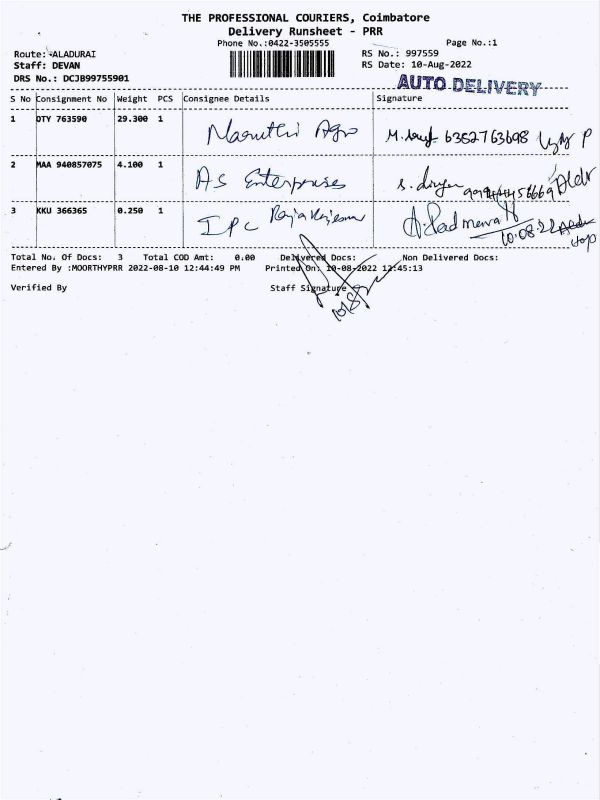 THE PROFESSIONAL COURIERS, Coimbatore
Delivery Runsheet - PRR
Phone No.:0422-3505555 Page No.:1
Route: ALADURAI RS No.: 997559
Staff: DEVAN RS Date: 10-Aug-2022
DRS No.: DCJB99755901 AUTO DELIVERY
S No Consignment No Weight PCS Consignee Details Signature
1 OTY 763590 29.300 1 Maruthi Agro 6382763698
2 MAA 940857075 4.100 1 AS Enterprises
3 KKU 366365 0.250 1 IPC 10.08.22
Total No. Of Docs: 3 Total COD Amt: 0.00 Delivered Docs: Non Delivered Docs:
Entered By :MOORTHYPRR 2022-08-10 12:44:49 PM Printed On: 10-08-2022 12:45:13
Verified By Staff Signature